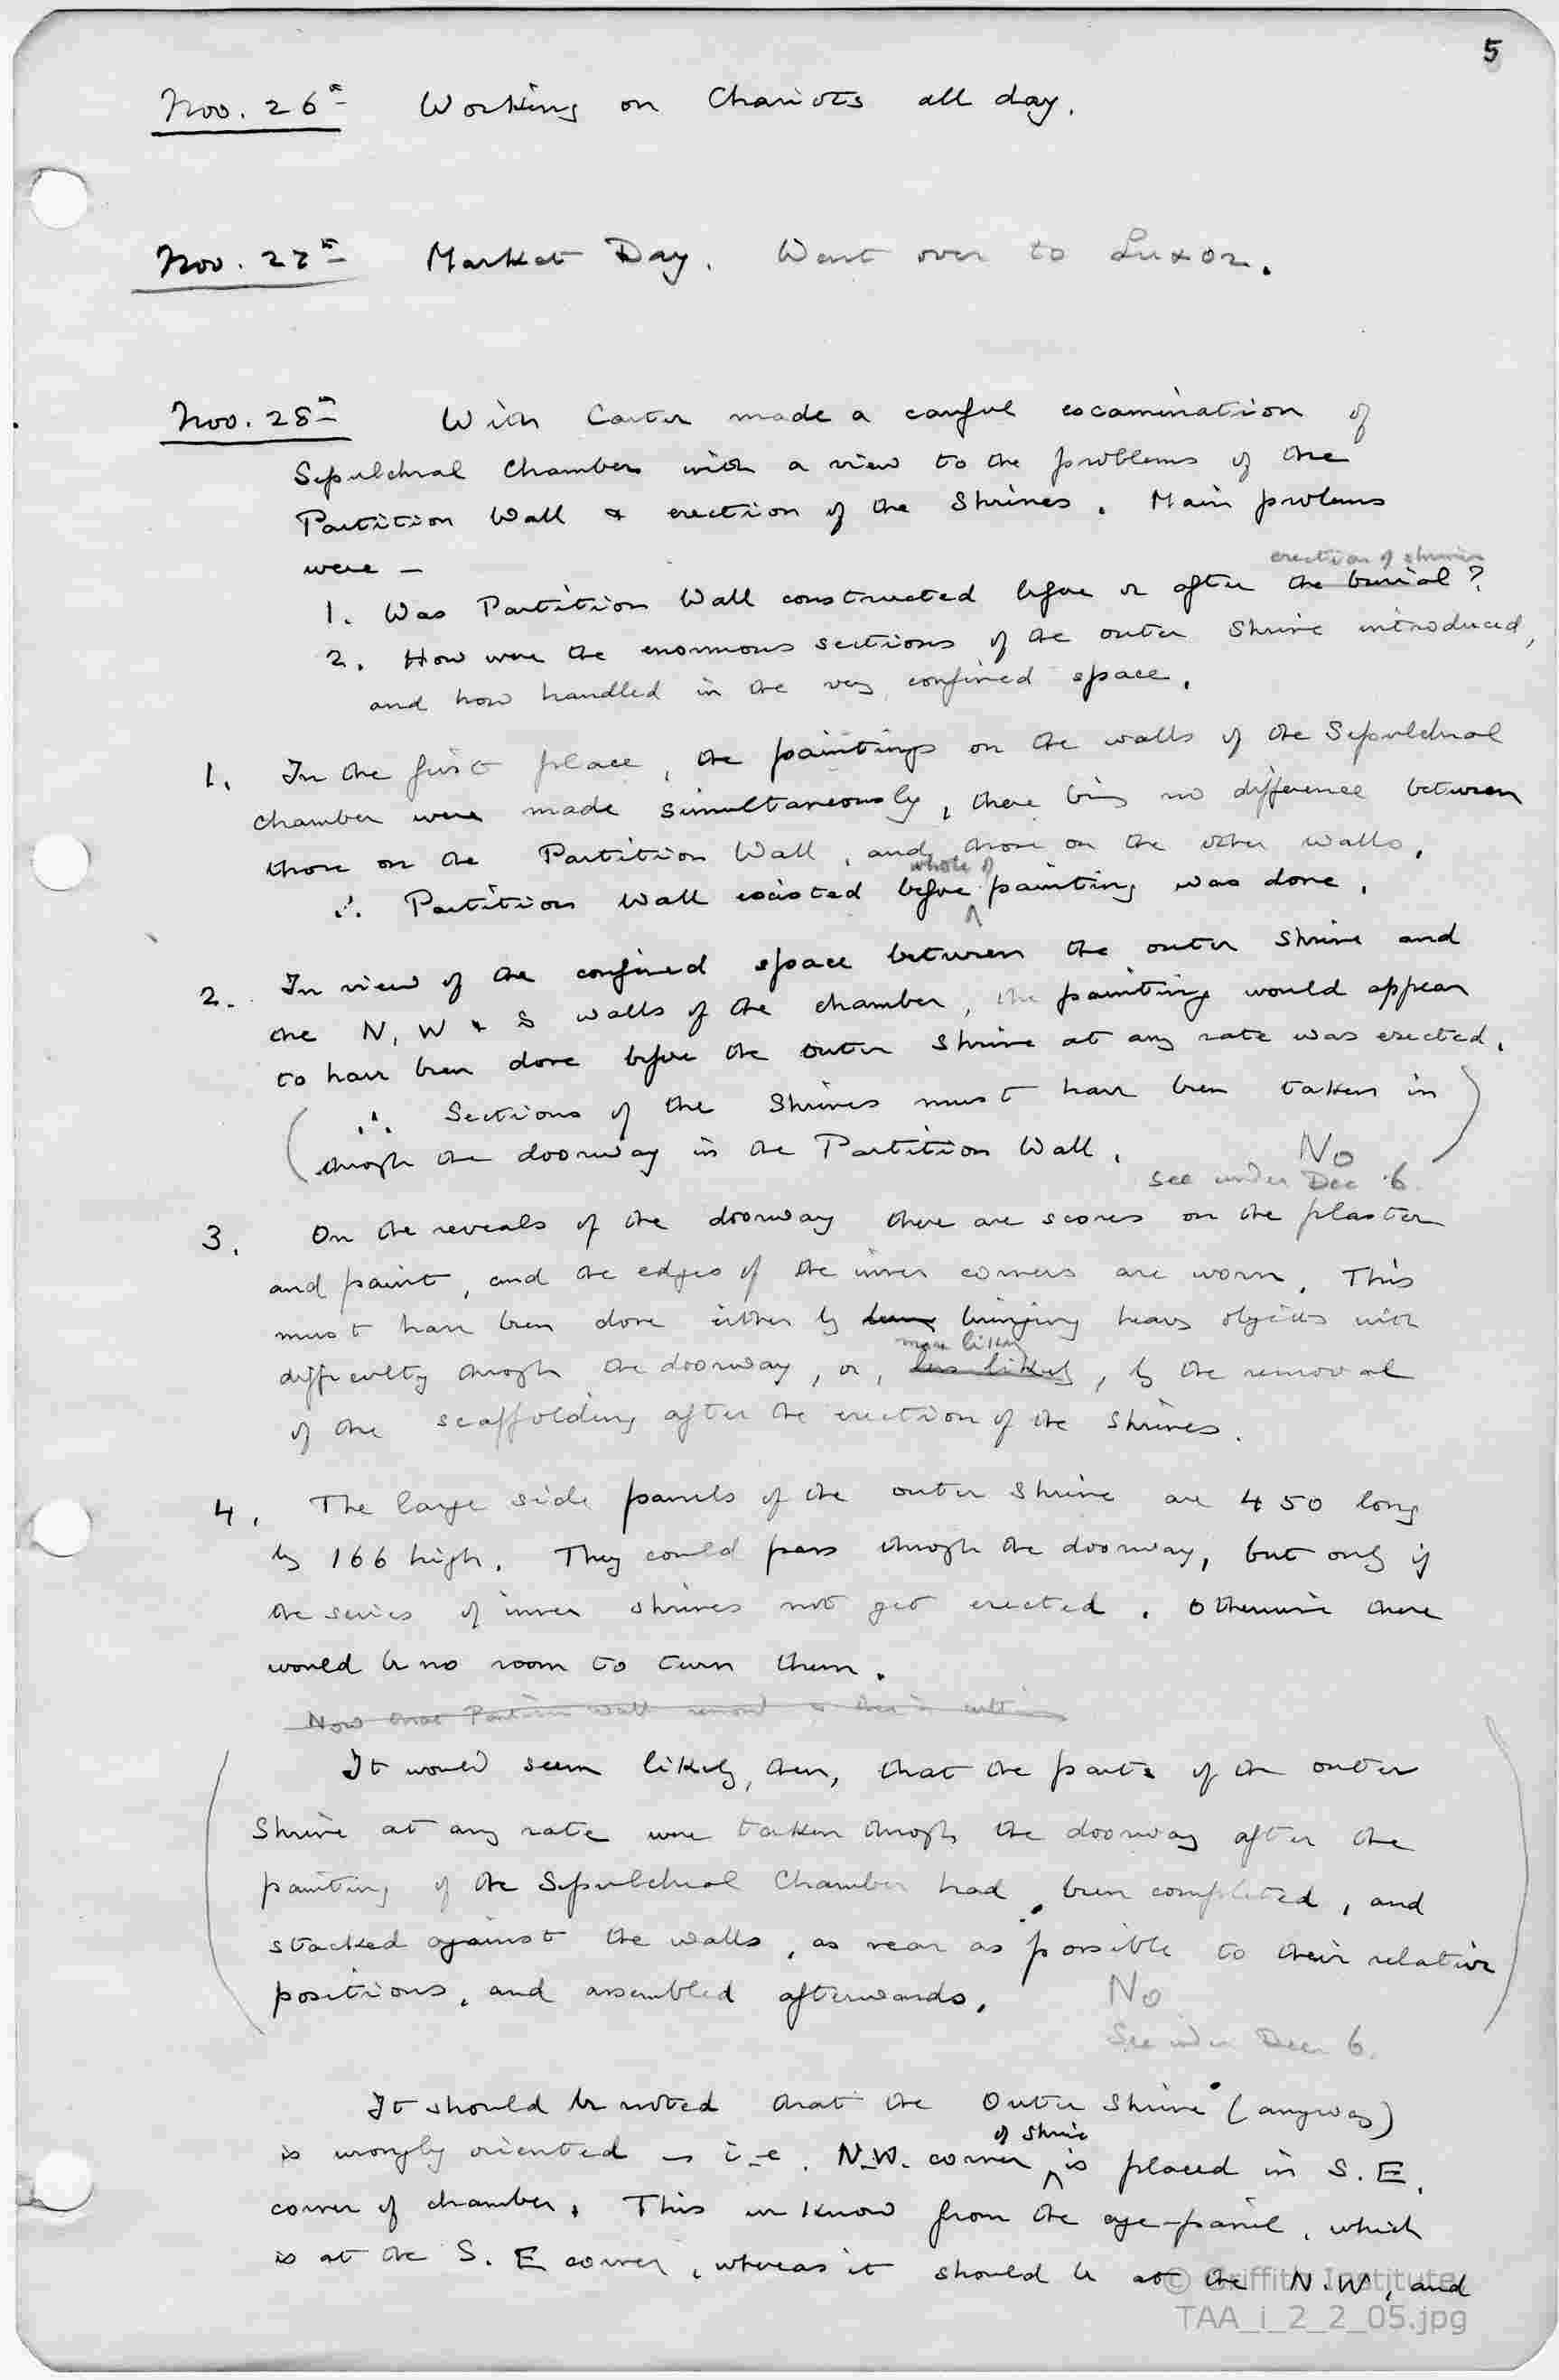 5
Nov. 26th Working on Chariots all day.
Nov. 27th Market Day. Went over to Luxor.
Nov. 28th With Carter made a careful examination of
Sepulchral Chamber with a view to the problems of the
Partition Wall & erection of the Shrines. Main problems
were —
erection of shrines
1. Was Partition Wall constructed before or after the burial?
2. How were the enormous sections of the outer Shrine introduced,
and how handled in the very confined space.
1. In the first place, the paintings on the walls of the Sepulchral
chamber were made simultaneously, there being no difference between
those on the Partition Wall, and those on the other walls.
whole of
∴ Partition Wall existed before ^ painting was done.
2. In view of the confined space between the outer Shrine and
the N, W & S walls of the chamber, the painting would appear
to have been done before the outer Shrine at any rate was erected.
( ∴ Sections of the Shrines must have been taken in )
through the doorway in the Partition Wall. No
see under Dec 6.
3. On the reveals of the doorway there are scores on the plaster
and paint, and the edges of the inner corners are worn. This
must have been done either by bringing heavy objects with
more likely
difficulty through the doorway, or, less likely, by the removal
of the scaffolding after the erection of the Shrines.
4. The large side panels of the outer Shrine are 450 long
by 166 high. They could pass through the doorway, but only if
the series of inner shrines not yet erected. Otherwise there
would be no room to turn them.
Now that Partition Wall
It would seem likely, then, that the parts of the outer
Shrine at any rate were taken through the doorway after the
painting of the Sepulchral Chamber had been completed, and
stacked against the walls, as near as possible to their relative
positions, and assembled afterwards. No
See under Dec 6.
It should be noted that the Outer Shrine (anyway)
of Shrine
is wrongly oriented — i.e. N.W. corner ^ is placed in S.E.
corner of chamber. This we know from the eye-panel, which
is at the S.E corner, whereas it should be at the N.W, and
© Griffith Institute
TAA_i_2_2_05.jpg